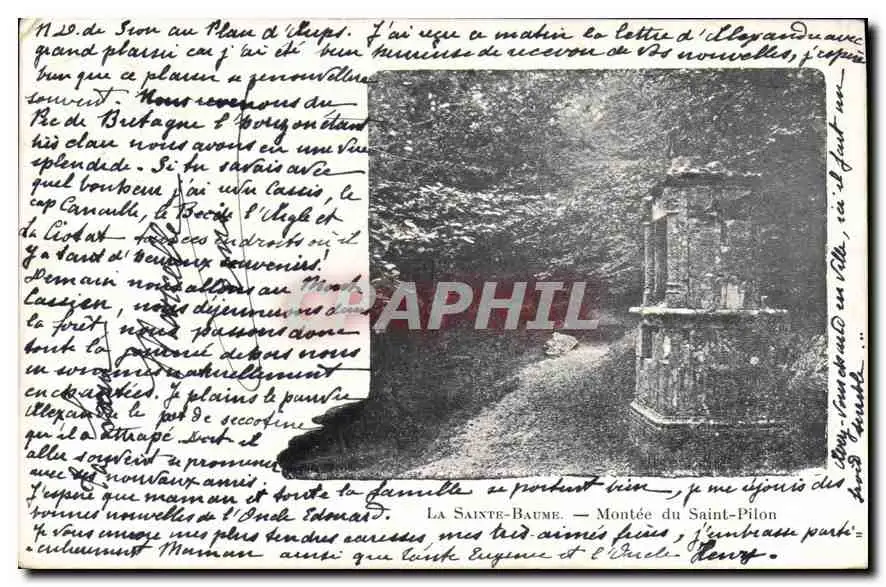 N.D. de Sion au Plan d'Aups. J'ai reçu ce matin la lettre d'Alexandre avec
grand plaisir car j'ai été bien heureuse de recevoir de vos nouvelles, j'espère
bien que ce plaisir se renouvellera
souvent. Nous revenons du
Pic de Bretagne l'horizon étant
très clair nous avons eu une vue
splendide. Si tu savais avec
quel bonheur j'ai revu Cassis, le
cap Canaille, le Bec de l'Aigle et
La Ciotat tous ces endroits où il
y a tant d'heureux souvenirs!
Demain nous allons au Mont
Cassien, nous déjeunerons dans
la forêt nous passons donc
toute la journée dehors nous
en sommes naturellement
enchantées. Je plains le pauvre
Alexandre le pot de seccotine
qu'il a attrapé. Doit il
aller souvent se promener
avec ses nouveaux amis.
J'espère que maman et toute la famille se portent bien, je me réjouis des
bonnes nouvelles de l'Oncle Edouard.
Je vous envoie mes plus tendres caresses, mes très-aimés frères, j'embrasse parti=
=culièrement Maman ainsi que tante Eugénie et l'Oncle Henry.
Avez-vous chaud en ville, ici il fait un
froid terrible...
CARPHILA
LA SAINTE-BAUME. — Montée du Saint-Pilon